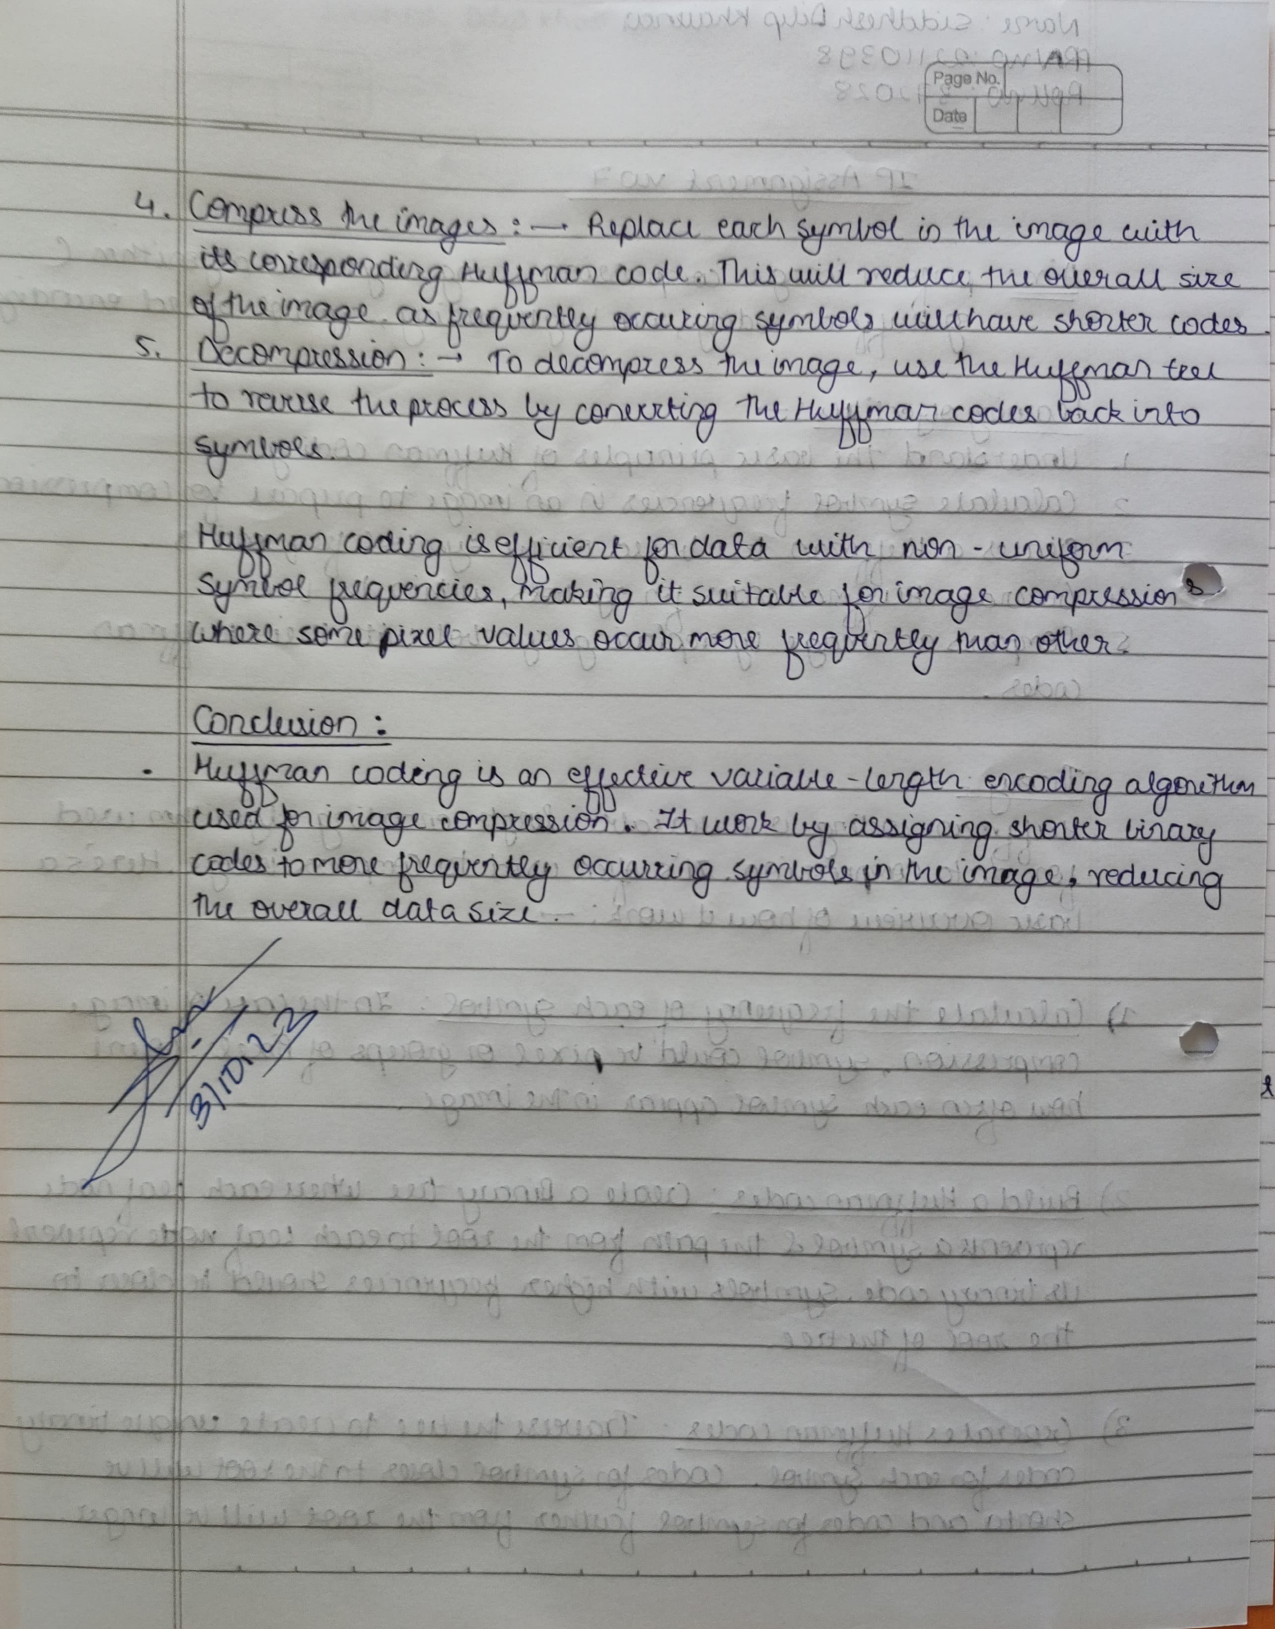 Page No.
Date
4. Compress the images : → Replace each symbol in the image with
its corresponding Huffman code. This will reduce the overall size
of the image as frequently occuring symbols will have shorter codes.
5. Decompression : → To decompress the image, use the Huffman tree
to the process by the Huffman codes back into
symbols.
Huffman coding is efficient for data with non - uniform
symbol frequencies, making it suitable for image compression
where some pixel values occur more frequently than other.
Conclusion :
. Huffman coding is an effective variable - length encoding algorithm
used for image compression. It work by assigning shorter binary
codes to more frequently occurring symbols in the image, reducing
the overall data size.